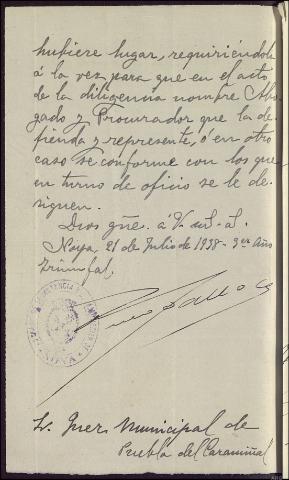 hubiere lugar, requiriéndola
á la vez para que en el acto
de la diligencia nombre Abo-
gado y Procurador que la de-
fienda y represente, ó en otro
caso se conforme con los que
en turno de oficio se le de-
signen.
Dios gûe. á V. m. a.
Noya, 21 de Julio de 1938 - 3er Año
Triunfal,
Sr. Juez Municipal de
Puebla del Caramiñal